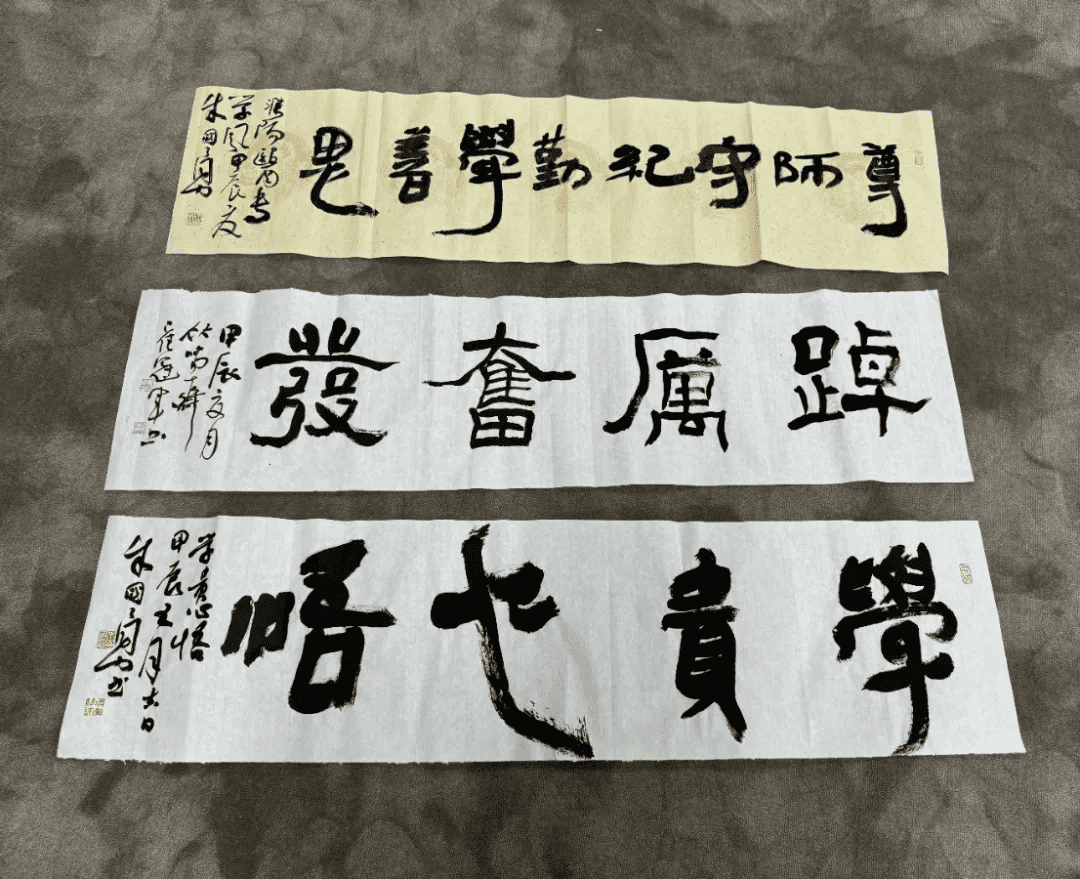 尊師守紀勤學善思
陽醫專
学風甲辰夏
朱國
踔厲奮發
甲辰夏月
書
學貴心悟
学貴心悟
甲辰五月吉日
朱國书